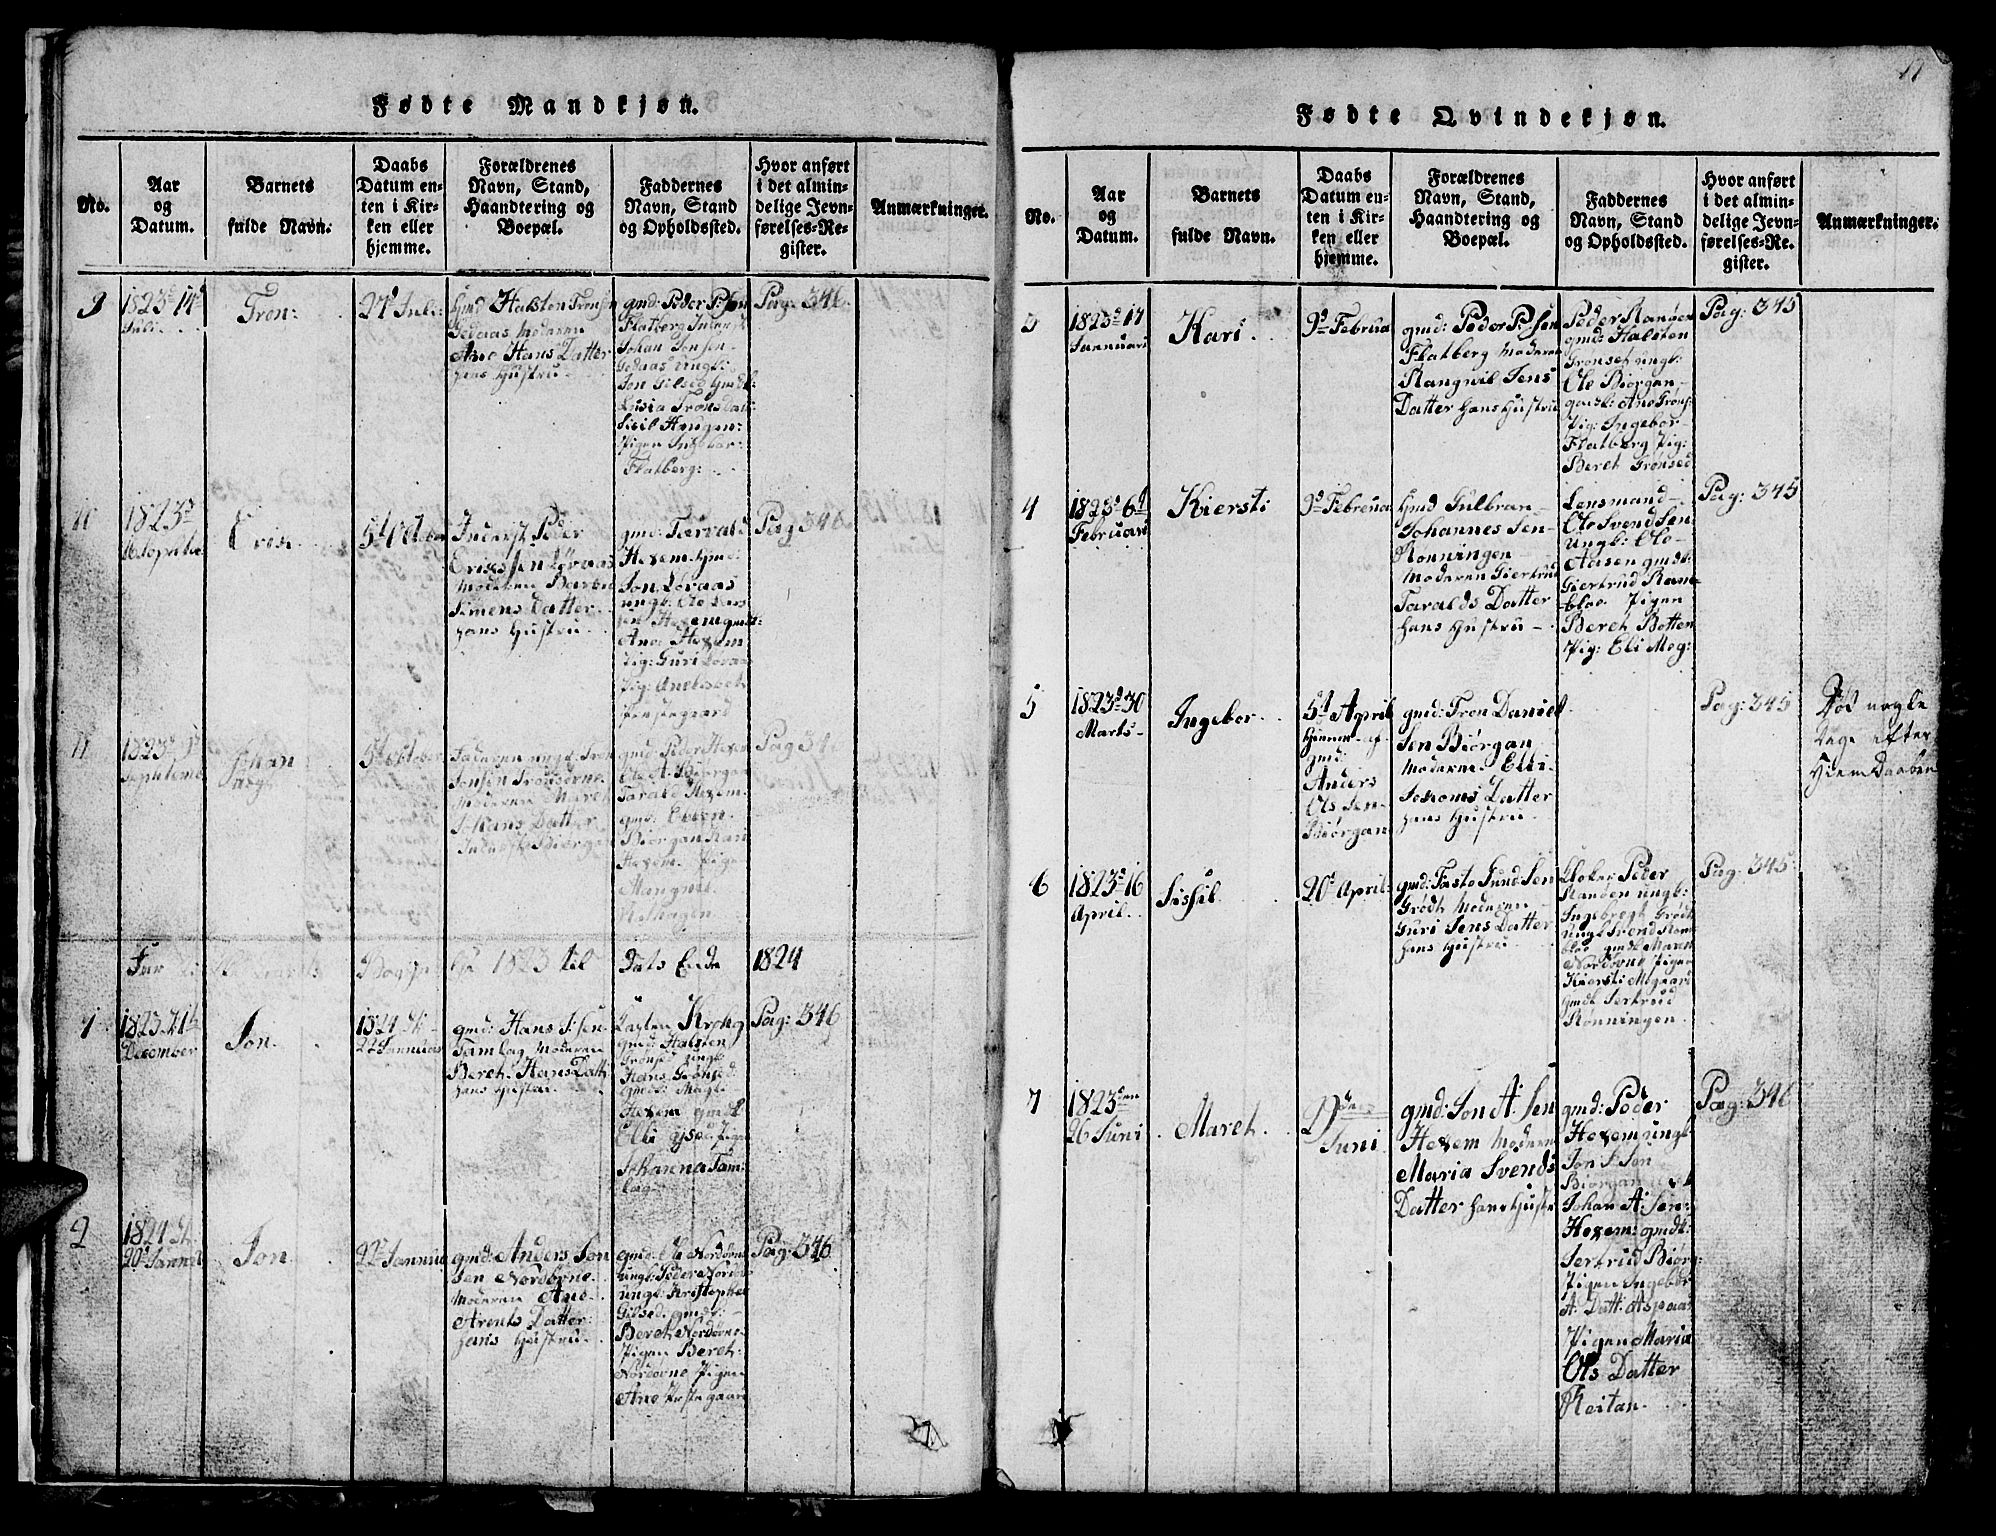 Fødte Mandkjøn.
No.
Aar
og
Datum.
Barnets
fulde Navn.
Daabs
Datum en-
ten i Kir-
ken eller
hjemme.
Forældrenes
Navn, Stand,
Haandtering og
Boepæl.
Faddernes
Navn, Stand
og Opholdssted.
Hvor anført
i det almin-
delige Jevn-
førelses-Re-
gister.
Anmærkninger.
9
1823 d 14d
Juli
Tron
27d Juli
Gmd Halsten Tronsen
Gedaas Moderen
Ane Hans Datter
hans Hustru
gmd: Peder P:sen
Flatberg
Johan Jensen
Gedaas Ungk:
Jon Gilsed Gmdk:
Lusia Trons Datt:
Sisil Haugen
Pigen Ingebor
Flatberg:
Pag: 346
10
1823 d
5d October
Inderst Peder
Eriks sen Løvaas
Moderen
Simens Datter
hans Hustru
gmd: Torvald
Hexem Gmd:
Jon Løvaas
ungk: Ole
Hexem gmdk:
Ane Hexem
Pig: Guri Løvaas
Pig: Anelisbet
Prestegaard
Pag 346
11
1823
Septemb
Johan
5d October
Faderen ungk:
Moderen Maret
Johans Datter
Inderste Biørgan
gmd: Peder Hexem
Ole A. Biørgan
Tarald Hexem
gmd: Even
Biørgan Kari
Hexem Pigen
Pag 346
1823 til
Dato Ende
1824
1
1823 21de
December
Jon
1824 d
22 Januar
gmd: Hans J: Sen
Tamlag Moderen
Beret Hans Datt:
hans Hustru
gmd: Halsten
Grønsed ungk:
Hans Grønsed
gmdk: Magli
Hexem gmdk
Elli
Johanna Tam-
lag
Pag: 346
2
1824 d
20d Januar
Jon
22d Januar
gmd: Anders Jon
Sen Nordørne
Moderen Ane
Arents Datter
hans Hustru
gmd: Ole Nordørne
ungk: Peder
ungk: Kristopher
Gilsed: gmdk:
Beret Nordørne
Pigen Beret
Nordørne Pigen
Ane Prestegaard
Pag: 346
17
Fødte Qvindekjøn.
No.
Aar
og
Datum.
Barnets
fulde Navn.
Daabs
Datum en-
ten i Kir-
ken eller
hjemme.
Forældrenes
Navn, Stand,
Haandtering og
Boepæl.
Faddernes
Navn, Stand
og Opholdssted.
Hvor anført
i det almin-
delige Jevn-
førelses-Re-
gister.
Anmærkninger.
3
1823 d 17
Januari
Kari
9d Februa
gmd: Peder P: Sen
Flatberg Moderen
Rangnil Jens
Datter hans Hustru
Peder Ranøen
gmd: Halsten
Grønset ungk:
Ole Biørgan
gmdk: Ane Grøns:
Pig: Ingebor
Flatberg Pig:
Beret Grønsed
Pag: 345
4
1823 d 6d
Februari
Kiersti
9d Februa
Gmd Gulbran
Johannes Sen
Rønningen
Moderen Giertrud
Taralds Datter
hans Hustru
Lensmand
Ole Svend Sen
Ungk: Ole
Aasen gmdk:
Giertrud Ram-
bloe Pigen
Beret Botten
Pig: Eli Mog:
Pag: 345
5
1823 d 30
Marts
Ingebor
5d April
hiemme af
gmd:
Anders
Ols Sen
Biørgan
gmd: Tron Daniel
Sen Biørgan
Moderen Elli
Datter
hans Hustru
Pag: 345
Død nogle
Dage efter
Hiem Daaben
6
1823 d 16
April
Sissil
20d April
gmd: Faste Gund: Sen
Grødt Moderen
Guri Jens Datter
hans Hustru
Kloker Peder
Ranøen ungk:
Ingebregt Grødt
Ungk Svend Ram
bloe gmdk: Maren
Nordøvne Pigen
Kiersti Mogaard
gmdk Jertrud
Rønningen
Pag: 345
7
1823 den
26 Juni
Maret
29den
Juni
gmd: Jon A: Sen
Hexem Moderen
Maria Svends
Datter hans Hustr
gmd: Peder
Hexem ungk
Jon S: Sen
Biørgan
Johan A: Sen
Hexem: gmdk:
Jertrud Biørg:
Pigen Ingebor
A: Datt: Aspaas
Pigen Maria
Ols Datter
Reitan
Pag: 346